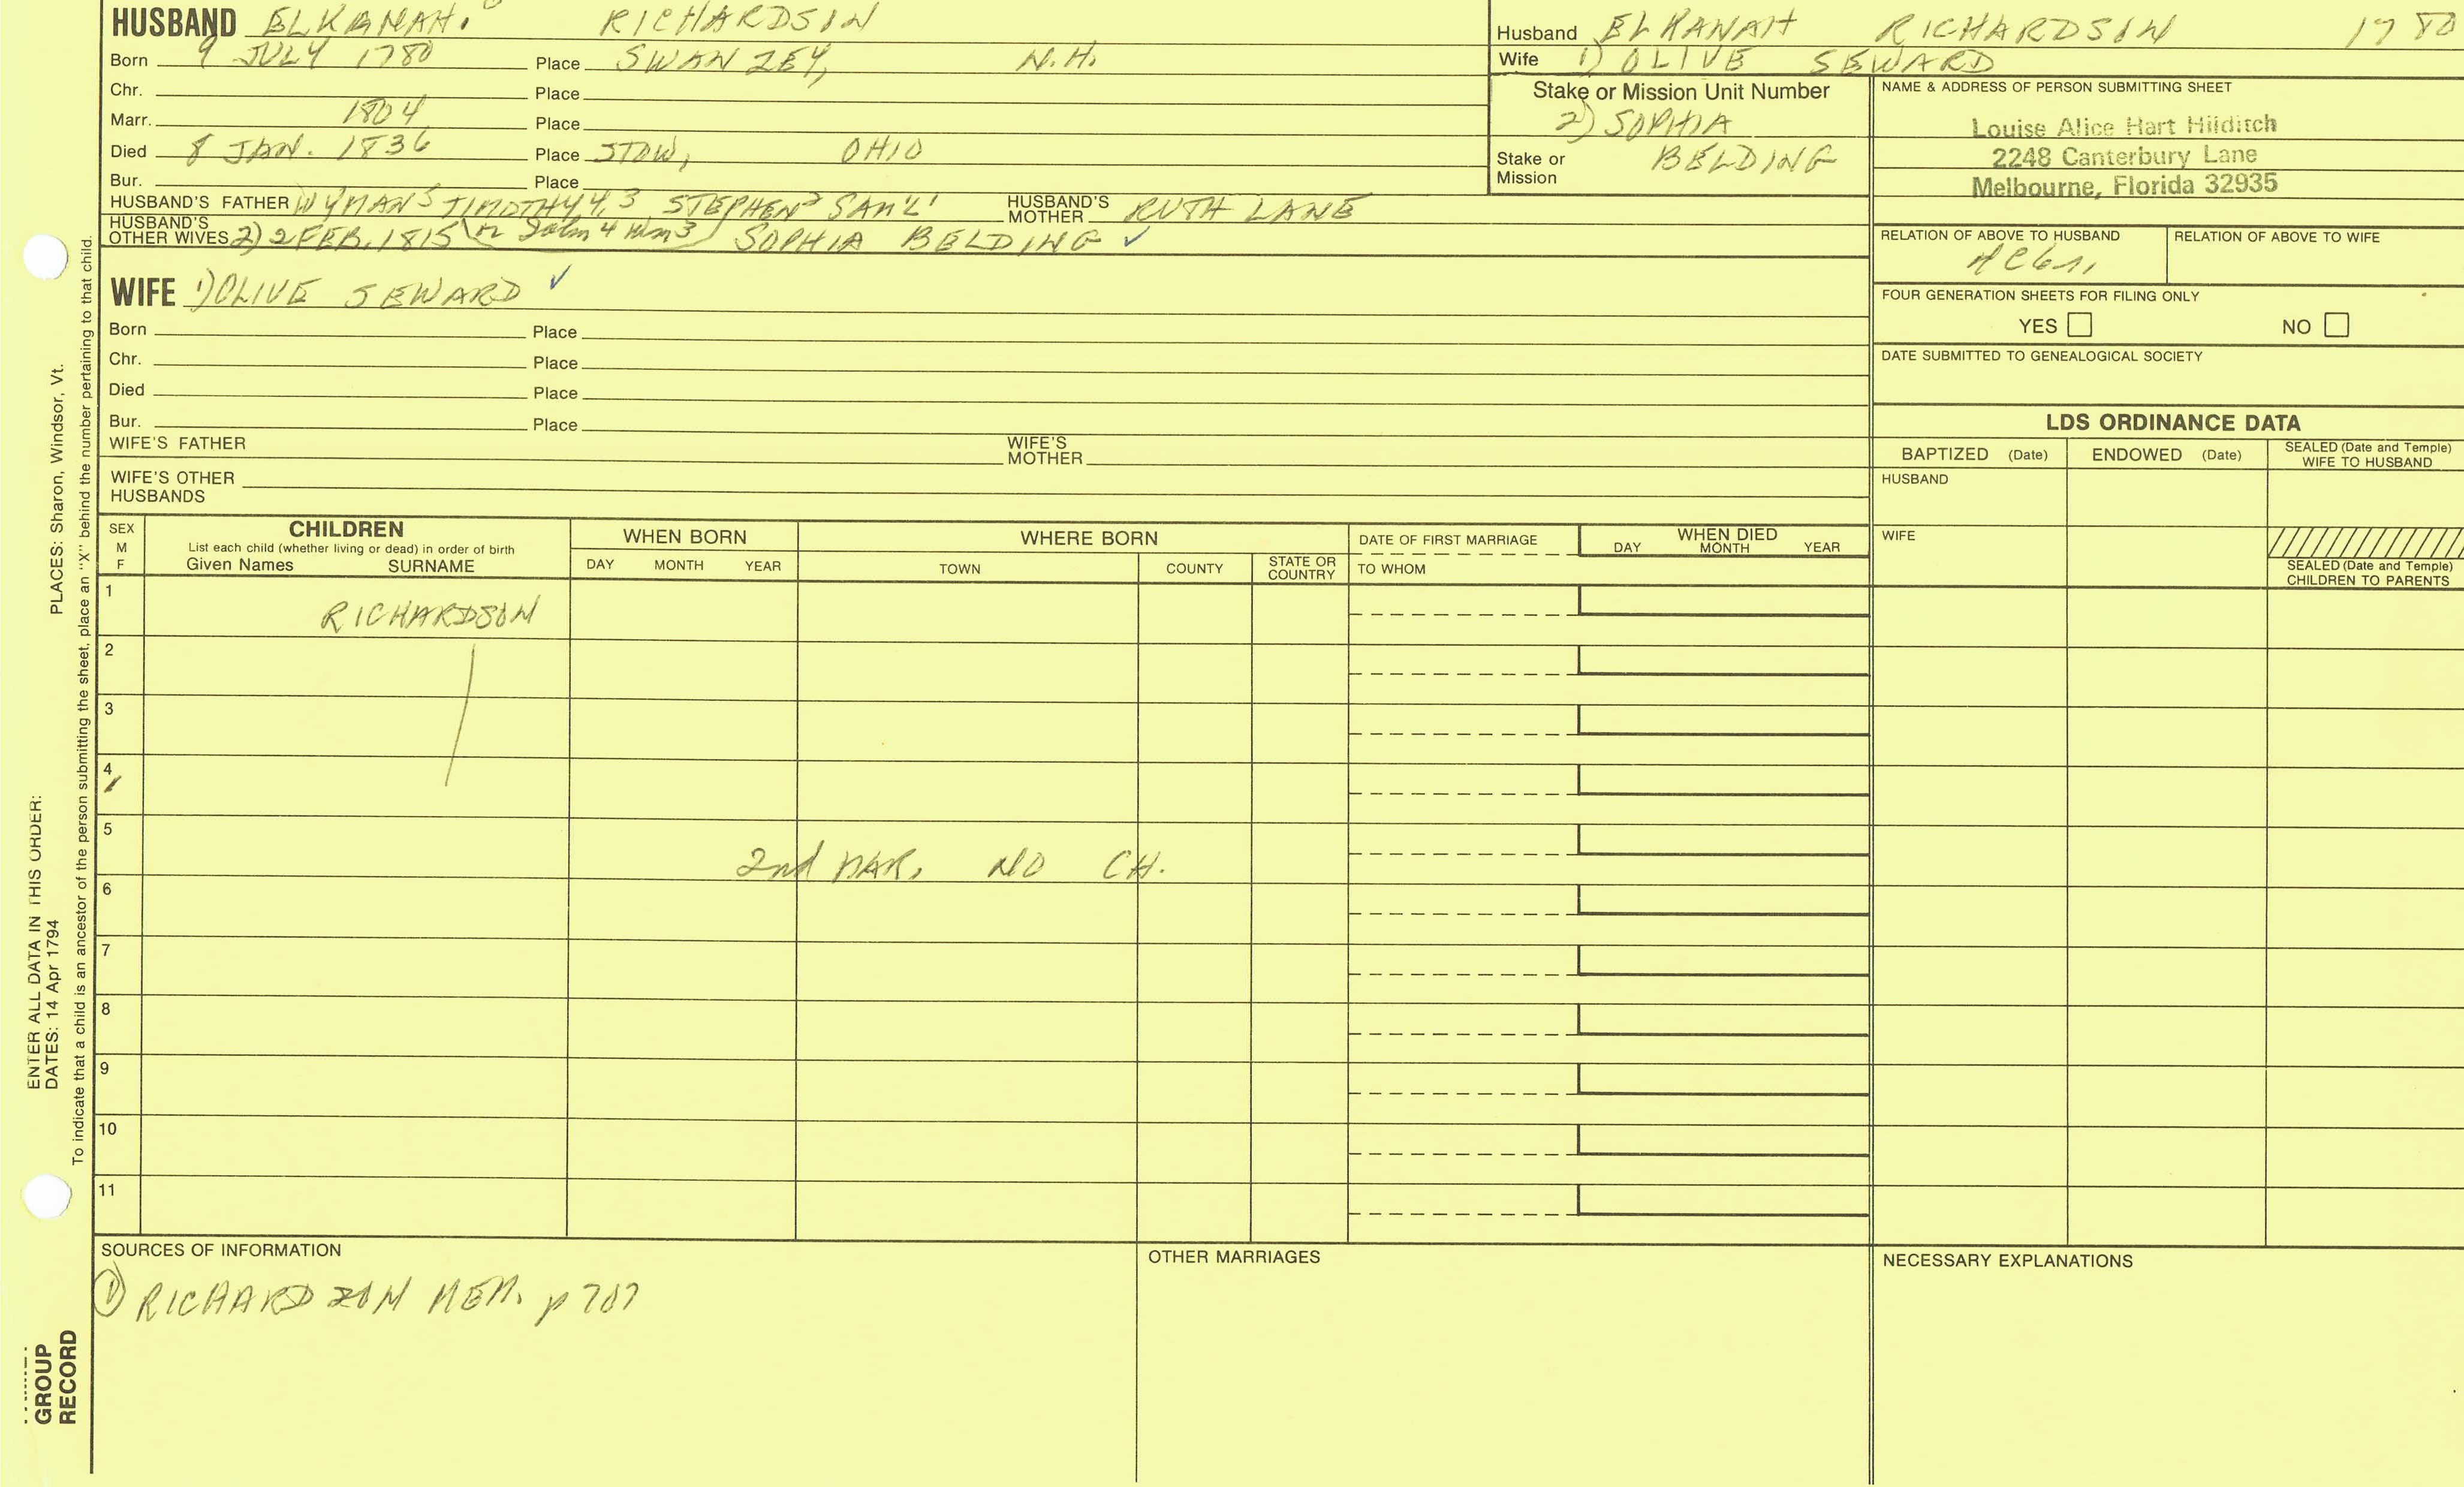 HUSBAND ELKANAH. RICHARDSON
Born 9 JULY 1780 Place SWANZEY, N.H.
Chr. Place
Marr. 1804 Place
Died 8 JAN. 1836 Place STOW, OHIO
Bur. Place
HUSBAND'S FATHER WYMAN5 TIMOTHY4,3 STEPHEN2 SAM'L1 HUSBAND'S MOTHER RUTH LANE
HUSBAND'S OTHER WIVES 2) 2 FEB. 1815 SOPHIA BELDING ✓
WIFE 1) OLIVE SEWARD ✓
Born Place
Chr. Place
Died Place
Bur. Place
WIFE'S FATHER WIFE'S MOTHER
WIFE'S OTHER HUSBANDS
Husband ELKANAH RICHARDSON 1780
Wife 1) OLIVE SEWARD
Stake or Mission Unit Number
2) SOPHIA
Stake or Mission BELDING
NAME & ADDRESS OF PERSON SUBMITTING SHEET
Louise Alice Hart Hilditch
2248 Canterbury Lane
Melbourne, Florida 32935
RELATION OF ABOVE TO HUSBAND RELATION OF ABOVE TO WIFE
FOUR GENERATION SHEETS FOR FILING ONLY
YES NO
DATE SUBMITTED TO GENEALOGICAL SOCIETY
LDS ORDINANCE DATA
BAPTIZED (Date) ENDOWED (Date) SEALED (Date and Temple) WIFE TO HUSBAND
HUSBAND
WIFE
SEALED (Date and Temple) CHILDREN TO PARENTS
SEX M F
CHILDREN
List each child (whether living or dead) in order of birth
Given Names SURNAME
WHEN BORN
DAY MONTH YEAR
WHERE BORN
TOWN COUNTY STATE OR COUNTRY
DATE OF FIRST MARRIAGE
TO WHOM
WHEN DIED
DAY MONTH YEAR
1 RICHARDSON
2
3
4
5
2nd MAR. NO CH.
6
7
8
9
10
11
SOURCES OF INFORMATION
① RICHARDSON MEM. p 707
OTHER MARRIAGES
NECESSARY EXPLANATIONS
ENTER ALL DATA IN THIS ORDER:
DATES: 14 Apr 1794 PLACES: Sharon, Windsor, Vt.
To indicate that a child is an ancestor of the person submitting the sheet, place an "X" behind the number pertaining to that child.
GROUP
RECORD